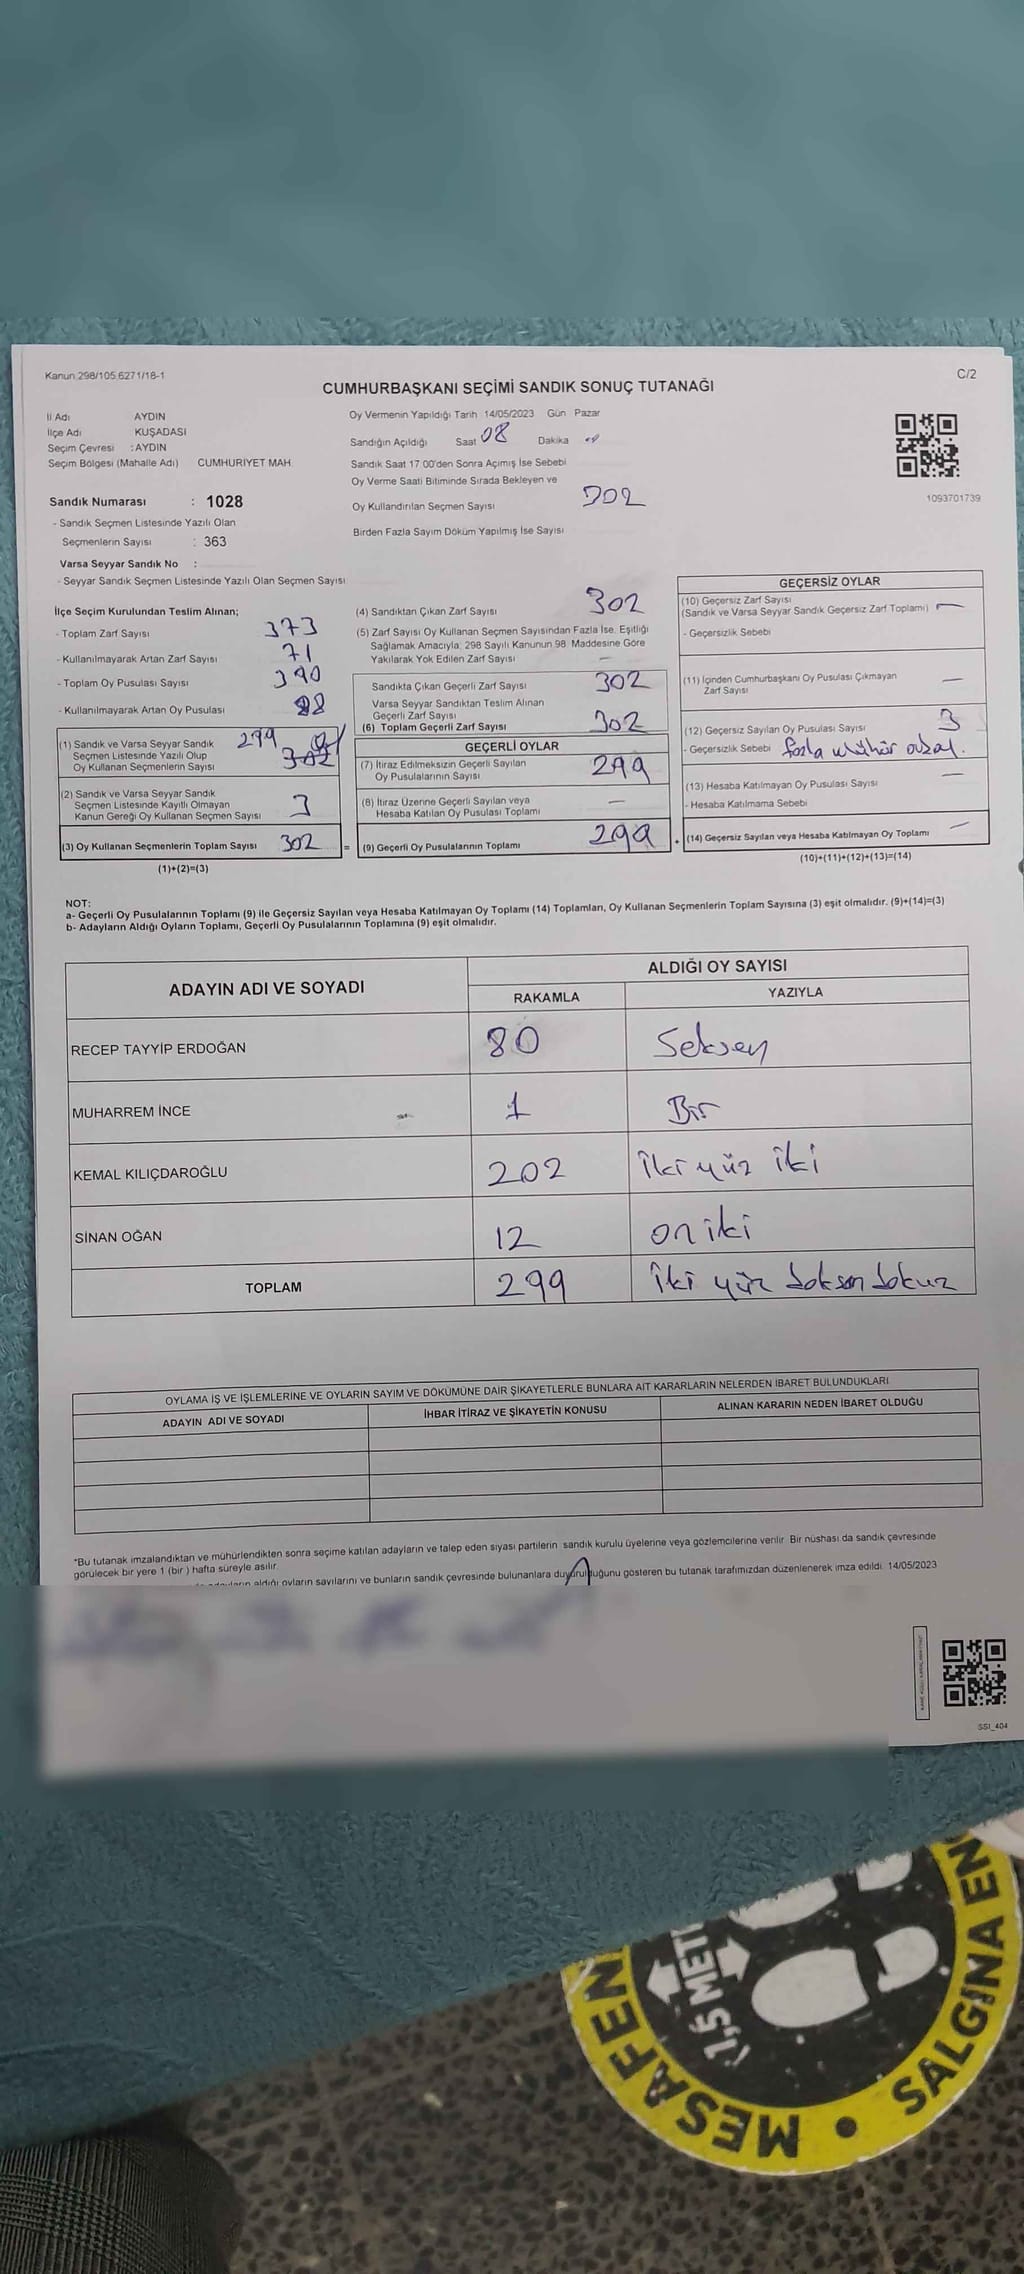 Kanun 298/105 6271/18-1
C/2
CUMHURBAŞKANI SEÇİMİ SANDIK SONUÇ TUTANAĞI
İl Adı AYDIN
İlçe Adı KUŞADASI
Seçim Çevresi : AYDIN
Seçim Bölgesi (Mahalle Adı) CUMHURİYET MAH.
Sandık Numarası : 1028
- Sandık Seçmen Listesinde Yazılı Olan
Seçmenlerin Sayısı : 363
Varsa Seyyar Sandık No :
- Seyyar Sandık Seçmen Listesinde Yazılı Olan Seçmen Sayısı
Oy Vermenin Yapıldığı Tarih 14/05/2023 Gün Pazar
Sandığın Açıldığı Saat 08 Dakika
Sandık Saat 17:00'den Sonra Açımış İse Sebebi
Oy Verme Saati Bitiminde Sırada Bekleyen ve
Oy Kullandırılan Seçmen Sayısı 302
Birden Fazla Sayım Döküm Yapılmış İse Sayısı
1093701739
İlçe Seçim Kurulundan Teslim Alınan;
- Toplam Zarf Sayısı 373
- Kullanılmayarak Artan Zarf Sayısı 71
- Toplam Oy Pusulası Sayısı 390
- Kullanılmayarak Artan Oy Pusulası 88
(1) Sandık ve Varsa Seyyar Sandık 299
Seçmen Listesinde Yazılı Olup 302
Oy Kullanan Seçmenlerin Sayısı
(2) Sandık ve Varsa Seyyar Sandık
Seçmen Listesinde Kayıtlı Olmayan
Kanun Gereği Oy Kullanan Seçmen Sayısı 3
(3) Oy Kullanan Seçmenlerin Toplam Sayısı 302 =
(1)+(2)=(3)
(4) Sandıktan Çıkan Zarf Sayısı 302
(5) Zarf Sayısı Oy Kullanan Seçmen Sayısından Fazla İse, Eşitliği
Sağlamak Amacıyla, 298 Sayılı Kanunun 98. Maddesine Göre
Yakılarak Yok Edilen Zarf Sayısı —
Sandıkta Çıkan Geçerli Zarf Sayısı 302
Varsa Seyyar Sandıktan Teslim Alınan
Geçerli Zarf Sayısı
(6) Toplam Geçerli Zarf Sayısı 302
GEÇERLİ OYLAR
(7) İtiraz Edilmeksizin Geçerli Sayılan
Oy Pusulalarının Sayısı 299
(8) İtiraz Üzerine Geçerli Sayılan veya
Hesaba Katılan Oy Pusulası Toplamı —
(9) Geçerli Oy Pusulalarının Toplamı 299 +
GEÇERSİZ OYLAR
(10) Geçersiz Zarf Sayısı
(Sandık ve Varsa Seyyar Sandık Geçersiz Zarf Toplamı) —
- Geçersizlik Sebebi
(11) İçinden Cumhurbaşkanı Oy Pusulası Çıkmayan
Zarf Sayısı —
(12) Geçersiz Sayılan Oy Pusulası Sayısı 3
- Geçersizlik Sebebi fazla mühür
(13) Hesaba Katılmayan Oy Pusulası Sayısı —
- Hesaba Katılmama Sebebi
(14) Geçersiz Sayılan veya Hesaba Katılmayan Oy Toplamı —
(10)+(11)+(12)+(13)=(14)
NOT:
a- Geçerli Oy Pusulalarının Toplamı (9) ile Geçersiz Sayılan veya Hesaba Katılmayan Oy Toplamı (14) Toplamları, Oy Kullanan Seçmenlerin Toplam Sayısına (3) eşit olmalıdır. (9)+(14)=(3)
b- Adayların Aldığı Oyların Toplamı, Geçerli Oy Pusulalarının Toplamına (9) eşit olmalıdır.
ADAYIN ADI VE SOYADI
ALDIĞI OY SAYISI
RAKAMLA YAZIYLA
RECEP TAYYİP ERDOĞAN 80 Seksen
MUHARREM İNCE 1 Bir
KEMAL KILIÇDAROĞLU 202 İki yüz iki
SİNAN OĞAN 12 on iki
TOPLAM 299 İki yüz doksan dokuz
OYLAMA İŞ VE İŞLEMLERİNE VE OYLARIN SAYIM VE DÖKÜMÜNE DAİR ŞİKAYETLERLE BUNLARA AİT KARARLARIN NELERDEN İBARET BULUNDUKLARI
ADAYIN ADI VE SOYADI İHBAR İTİRAZ VE ŞİKAYETİN KONUSU ALINAN KARARIN NEDEN İBARET OLDUĞU
*Bu tutanak imzalandıktan ve mühürlendikten sonra seçime katılan adayların ve talep eden siyasi partilerin sandık kurulu üyelerine veya gözlemcilerine verilir. Bir nüshası da sandık çevresinde
görülecek bir yere 1 (bir ) hafta süreyle asılır.
aldığı oyların sayılarını ve bunların sandık çevresinde bulunanlara duyurulduğunu gösteren bu tutanak tarafımızdan düzenlenerek imza edildi. 14/05/2023
SSI_404
MESAFEN
(1,5 MET
SALGINA EN